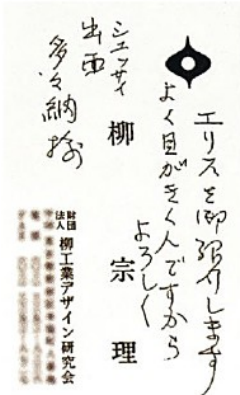 エリスを御紹介します
よく目がきくんですから
よろしく
柳 宗 理
シエンサイ
出西
多々納様
財団法人 柳工業デザイン研究会